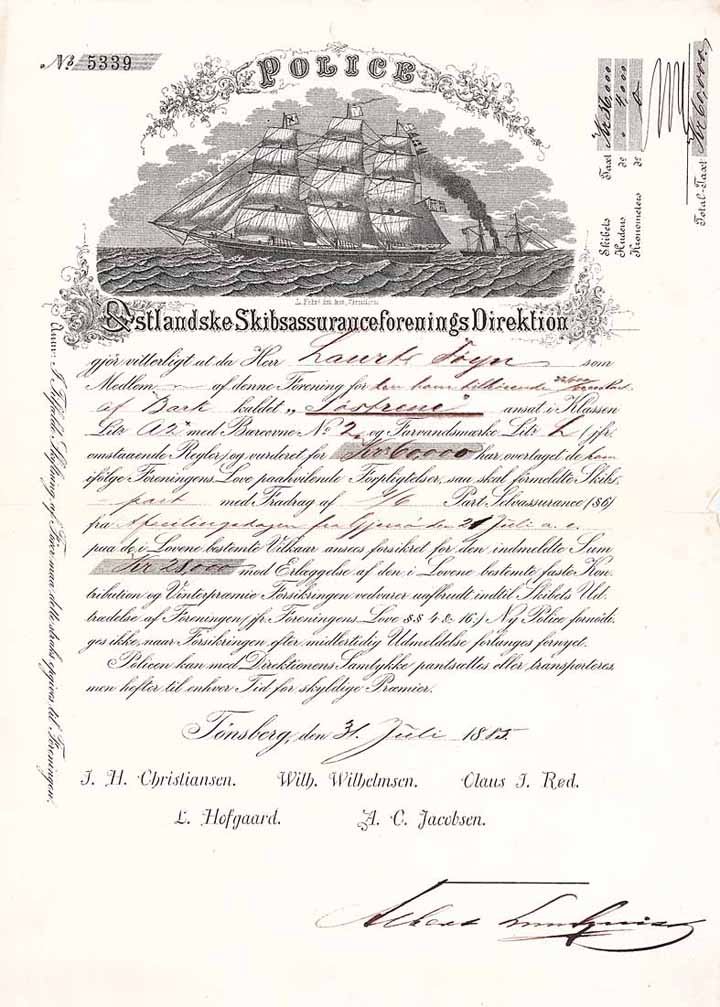 No 5339
POLICE
Skibets Taxt Kr 56,000
Huders do " 4,000
Kronometers do 0
Total-Taxt Kr 60,000
Østlandske Skibsassuranceforenings Direktion
gjör vitterligt at da Herr Laurts Foyn som
Medlem af denne Forening for den ham tilhörende
af Bark kaldet „Söstrene" ansat i Klassen
Litr A2 med Bareevne No 2 og Forvandsmærke Litr L (jfr
omstaaende Regler) og vurderet for Kr 60,000 har overtaget de ham
ifölge Foreningens Love paahvilende Forpligtelser, saa skal formeldte Skibs,
part med Fradrag af 1/6 Part Selvassurance (§6)
fra Afseilingsdagen fra den 21 Juli a. c.
paa de i Lovene bestemte Vilkaar ansees forsikret for den indmeldte Sum
Kr 28,000 mod Erlæggelse af den i Lovene bestemte faste Kon-
tribution og Vinterpræmie Forsikringen vedvarer uafbrudt indtil Skibets Ud-
trædelse af Foreningen (jfr. Foreningens Love §§ 4 & 16.) Ny Police fornöди-
ges ikke, naar Forsikringen efter midlertidig Udmeldelse forlanges fornyet.
Policen kan med Direktionens Samtykke pantsættes eller transporteres,
men hefter til enhver Tid for skyldige Præmier.
Tönsberg, den 31. Juli 1885.
J. H. Christiansen. Wilh. Wilhelmsen. Claus J. Red.
L. Hofgaard. A. C. Jacobsen.
Anm: I Tilfælde Skiftning af Eiere maa dette straks opgives til Foreningen.